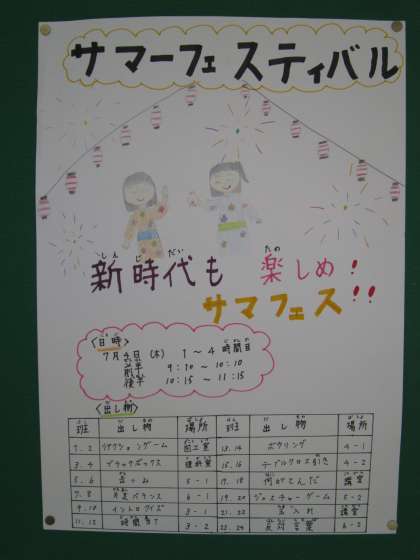 サマーフェスティバル
新時代も 楽しめ!
しんじだい たの
サマフェス!!
〈日時〉
7月4日(木) 1〜4時間目
前半 9:10〜10:10
後半 10:15〜11:15
〈出し物〉
班 出し物 場所 班 出し物 場所
1.2 リアクションゲーム 図工室 13.14 ボウリング 4-1
3.4 ブラックボックス 理科室 15.16 テーブルクロス引き 4-2
5.6 5-1 17.18
7.8 バランス 6-1 19.20 ジェスチャーゲーム 5-2
9.10 イントロクイズ 3-1 21.22 玉入れ
11.12 時間当て 3-2 23.24 反対言葉 6-2